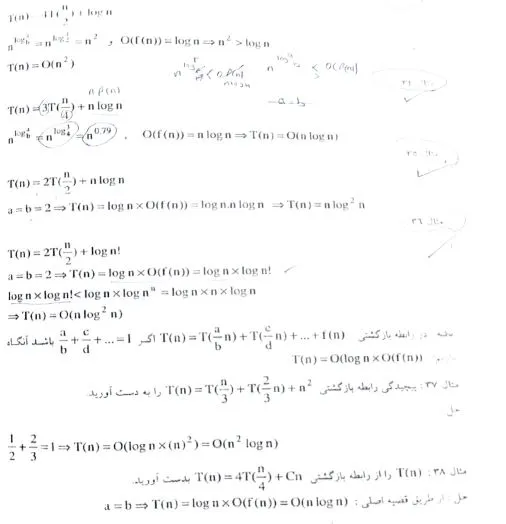 T(n) = 4T(n/2) + log n
n^{log_b^a} = n^{log_2^4} = n^2 و O(f(n)) = log n ⇒ n^2 > log n
T(n) = O(n^2)
T(n) = 3T(n/4) + n log n
n^{log_b^a} = n^{log_4^3} = n^{0.79} , O(f(n)) = n log n ⇒ T(n) = O(n log n)
T(n) = 2T(n/2) + n log n
a = b = 2 ⇒ T(n) = log n × O(f(n)) = log n.n log n ⇒ T(n) = n log^2 n
مثال ۳۶
T(n) = 2T(n/2) + log n!
a = b = 2 ⇒ T(n) = log n × O(f(n)) = log n × log n!
log n × log n! < log n × log n^n = log n × n × log n
⇒ T(n) = O(n log^2 n)
در رابطه بازگشتی T(n) = T(a/b n) + T(c/d n) + ... + f(n) اگر a/b + c/d + ... = 1 باشد آنگاه
T(n) = O(log n × O(f(n))
مثال ۳۷ : پیچیدگی رابطه بازگشتی T(n) = T(n/3) + T(2/3 n) + n^2 را به دست آورید.
حل
1/2 + 2/3 = 1 ⇒ T(n) = O(log n × (n)^2) = O(n^2 log n)
مثال ۳۸ : T(n) را از رابطه بازگشتی T(n) = 4T(n/4) + Cn بدست آورید.
حل : از طریق قضیه اصلی : a = b ⇒ T(n) = log n × O(f(n)) = O(n log n)